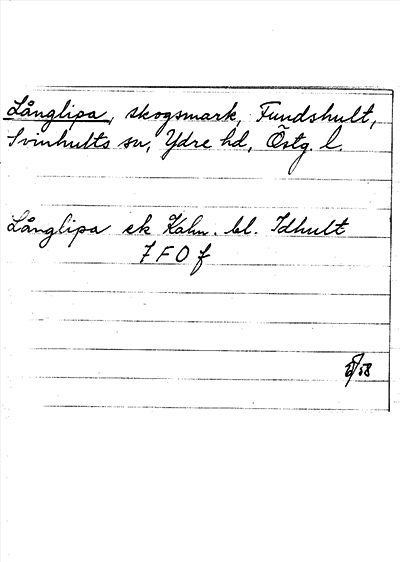 Långlipa, skogsmark, Fundshult,
Svinhults sn, Ydre hd, Östg. l.
Långlipa ek Kahn. bl. Idhult
7 F O f